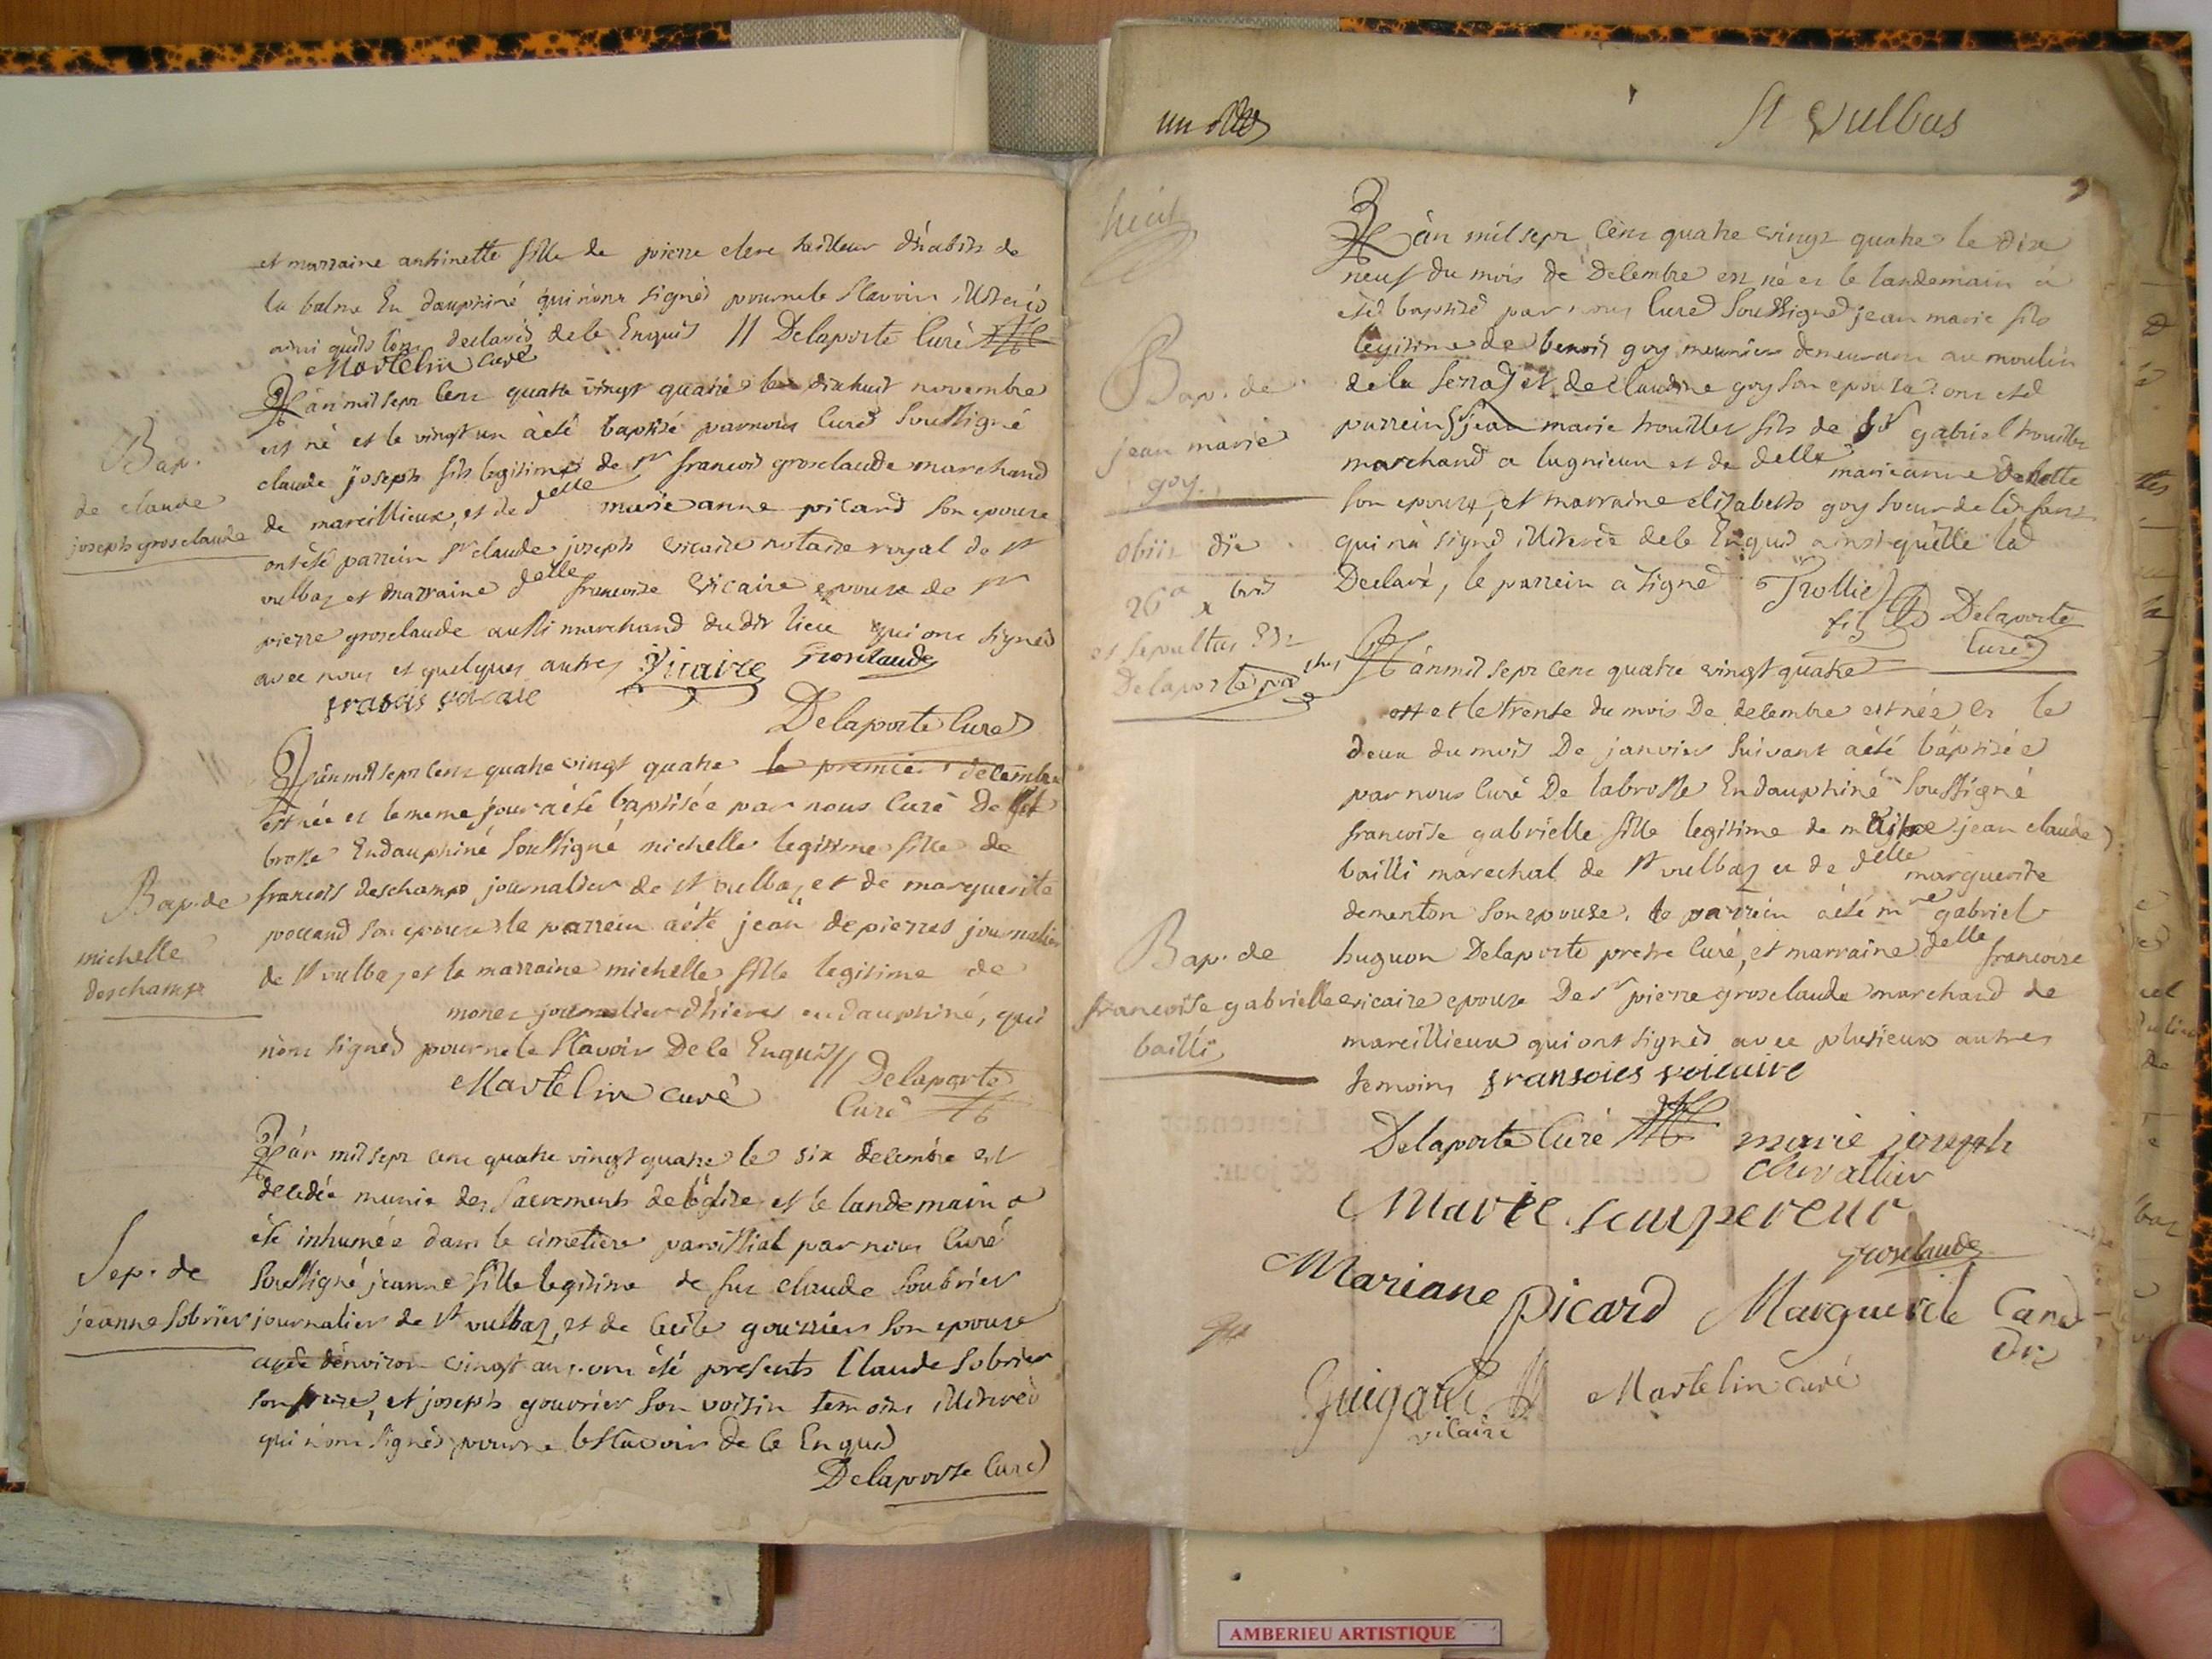 et marraine anthinette fille de pierre clere tailleur d'habits de
la balme En dauphiné qui n'ont signés pour ne le Scavoir illiterés
ainsi qu'ils l'on declarés de ce Enquis // Delaporte Curé
Martelin curé
L'an mil sept Cent quatre vingt quatre le dixhuit novembre
est né et le vingt un a èté baptisé par nous Curé Soussigné
claude joseph fils legitime de sr francois grosclaude marchand
de marcillieux, et de delle marie anne picard son epouse
ont èté parrein sr claude joseph vicaire notaire royal de st
vulbaz et marraine delle francoise vicaire epouse de sr
pierre grosclaude aussi marchand du dit lieu qui ont signés
avec nous et quelques autres Vicaire Grosclaude
Delaporte Curé
Bap.
de claude
joseph grosclaude
L'an mil sept Cent quatre vingt quatre le premier decembre
est née et le meme jour a èté baptisée par nous Curé De la
brosse En dauphiné Soussigné michelle legitime fille de
francois deschamps journalier de st vulbaz, et de marguerite
son epouse le parrein a èté jean depierres journalier
de st vulbaz, et la marraine michelle fille legitime de
monet journalier d'hieres en dauphiné, qui
n'ont signés pour ne le Scavoir De ce Enquis // Delaporte
Martelin curé Curé
Bap. de
michelle
deschamps
L'an mil sept cent quatre vingt quatre le six decembre est
decedée munie des Sacrements de l'églize, et le landemain a
èté inhumée dans le cimetiere paroissial par nous Curé
Soussigné jeanne fille legitime de feu claude Soubrier
journalier de st vulbaz, et de Cecile gourrier son epouse
agée d'environ vingt ans. ont èté presents Claude Sobrier
son frere, et joseph gouvrier son voisin temoins illiterés
qui n'ont signés pour ne le Scavoir de ce Enquis
Delaporte Curé
Sep. de
jeanne Sobrier
St Vulbas
huit
L'an mil sept Cent quatre vingt quatre le dix
neuf du mois de Decembre est né et le landemain a
eté baptisé par nous Curé Soussigné jean marie fils
legitime de benoit goy meunier demeurant au moulin
de la Serraz et de claudine goy son epouse: ont eté
parrein Sr jean marie trouiller fils de Sr gabriel trouiller
marchand a lagnieu et de delle marieanne
son epouse, et marraine elizabeth goy soeur de l'enfant
qui n'a signé illiterée de ce Enquis ainsi qu'elle l'a
Declaré, le parrein a signé Trollie
fils Delaporte
Curé
Bap. de
jean marie
goy.
obiit die
26a xbris
et sepultus Est
Delaporte
L'an mil sept cent quatre vingt quatre
et le trente du mois De decembre est née et le
deux du mois De janvier suivant a èté baptisée
par nous Curé De labrosse En dauphiné Soussigné
francoise gabrielle fille legitime de maitre jean claude
bailli marechal de st vulbaz et de delle marguerite
dementon son epouse. le parrein a èté mre gabriel
huguon Delaporte pretre Curé, et marraine delle francoise
vicaire epouse De sr pierre grosclaude marchand de
marcillieux qui ont signés avec plusieurs autres
temoins fransoies voicaire
Bap. de
francoise gabrielle
bailli
Delaporte Curé marie joseph
chevallier
Marie Lempereur
Grosclaude
Mariane Picard Marguerite Cane
Dr
Guigard Martelin curé
vicaire
AMBERIEU ARTISTIQUE